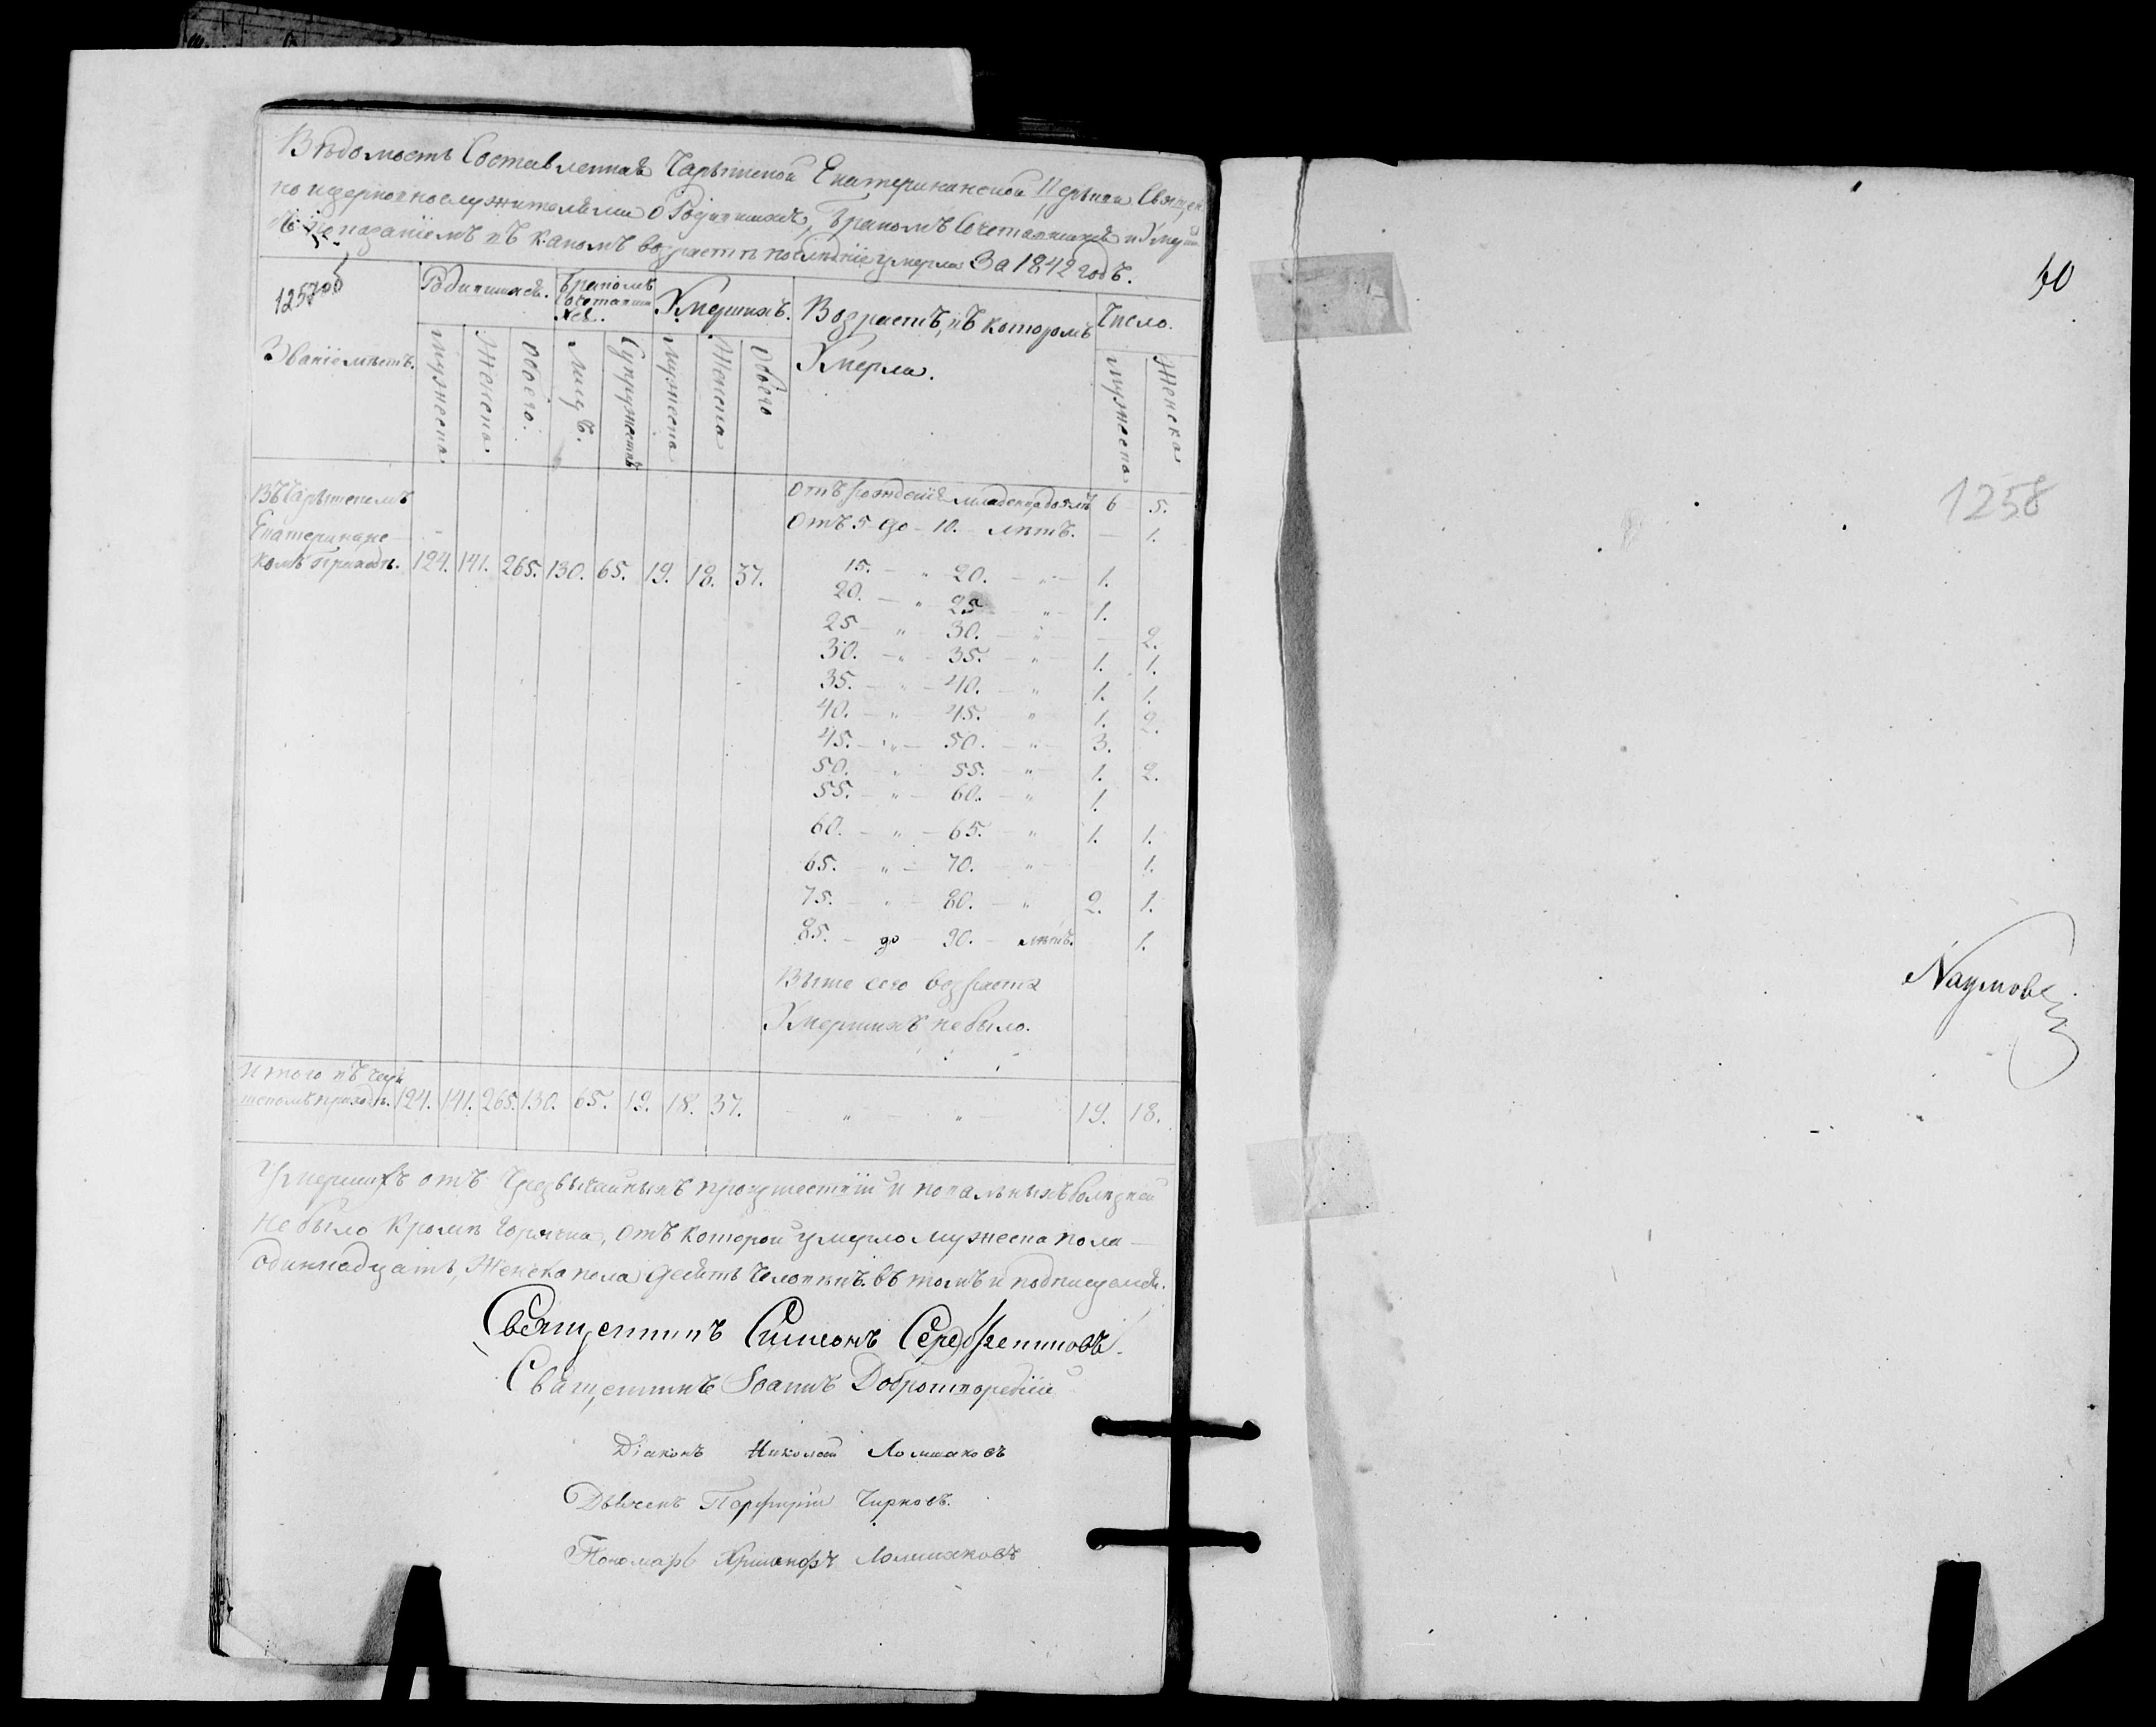 Вѣдомость Составленная Чарышской Екатерининской Церкви Священ
но и церковнослужителями о Родившихся, Бракомъ Сочетавшихся и Умер
съ показаніемъ въ какомъ возрастѣ послѣдніе умерли За 1842 годъ.
1257 об
Званіе мѣстъ.
Родившихся.
Бракомъ
Сочетавши
хся.
Умершихъ.
Возрастъ, въ которомъ
Умерли.
Число.
Мужеска. Женска. Обоего. Лицъ. Супружествъ Мужеска Женска Обоего Мужеска Женска
Въ Чарышскомъ
Екатерининс
комъ приходѣ. 124. 141. 265. 130. 65. 19. 18. 37.
Отъ рожденія младенца до 5 лѣтъ 6 5.
Отъ 5 до - 10. - лѣтъ. — 1.
15. — „ 20. — „ — 1.
20. — „ 25 — „ 1.
25 — „ 30. — „ — — 2.
30. — „ 35. — „ 1. 1.
35. — „ 40. — „ 1. 1.
40. — „ 45. — „ 1. 2.
45. — „ 50. — „ 3.
50. „ 55. „ 1. 2.
55. — „ 60. — „ 1.
60. — „ 65. — „ 1. 1.
65. — „ 70. — „ 1.
75. — „ 80. — „ 2. 1.
85. — до — 90. — лѣтъ. 1.
Выше сего возраста
Умершихъ не было.
Итого въ Чары
шскомъ приходѣ. 124. 141. 265. 130. 65. 19. 18. 37. „ „ 19. 18.
Умершихъ отъ Чрезвычайныхъ происшествій и повальныхъ болѣзней
не было кромѣ Горячки, отъ которой умерло мужеска пола
одиннадцать, Женска пола десять человѣкъ. въ томъ и подписуемся.
Священникъ Симеонъ Серебрениковъ.
Священникъ Іоаннъ Добротворскій
Діаконъ Николай Ломшаковъ
Дьячекъ Порфирій Чирковъ.
Пономарь Ломшаковъ
40
1258
Наумовъ